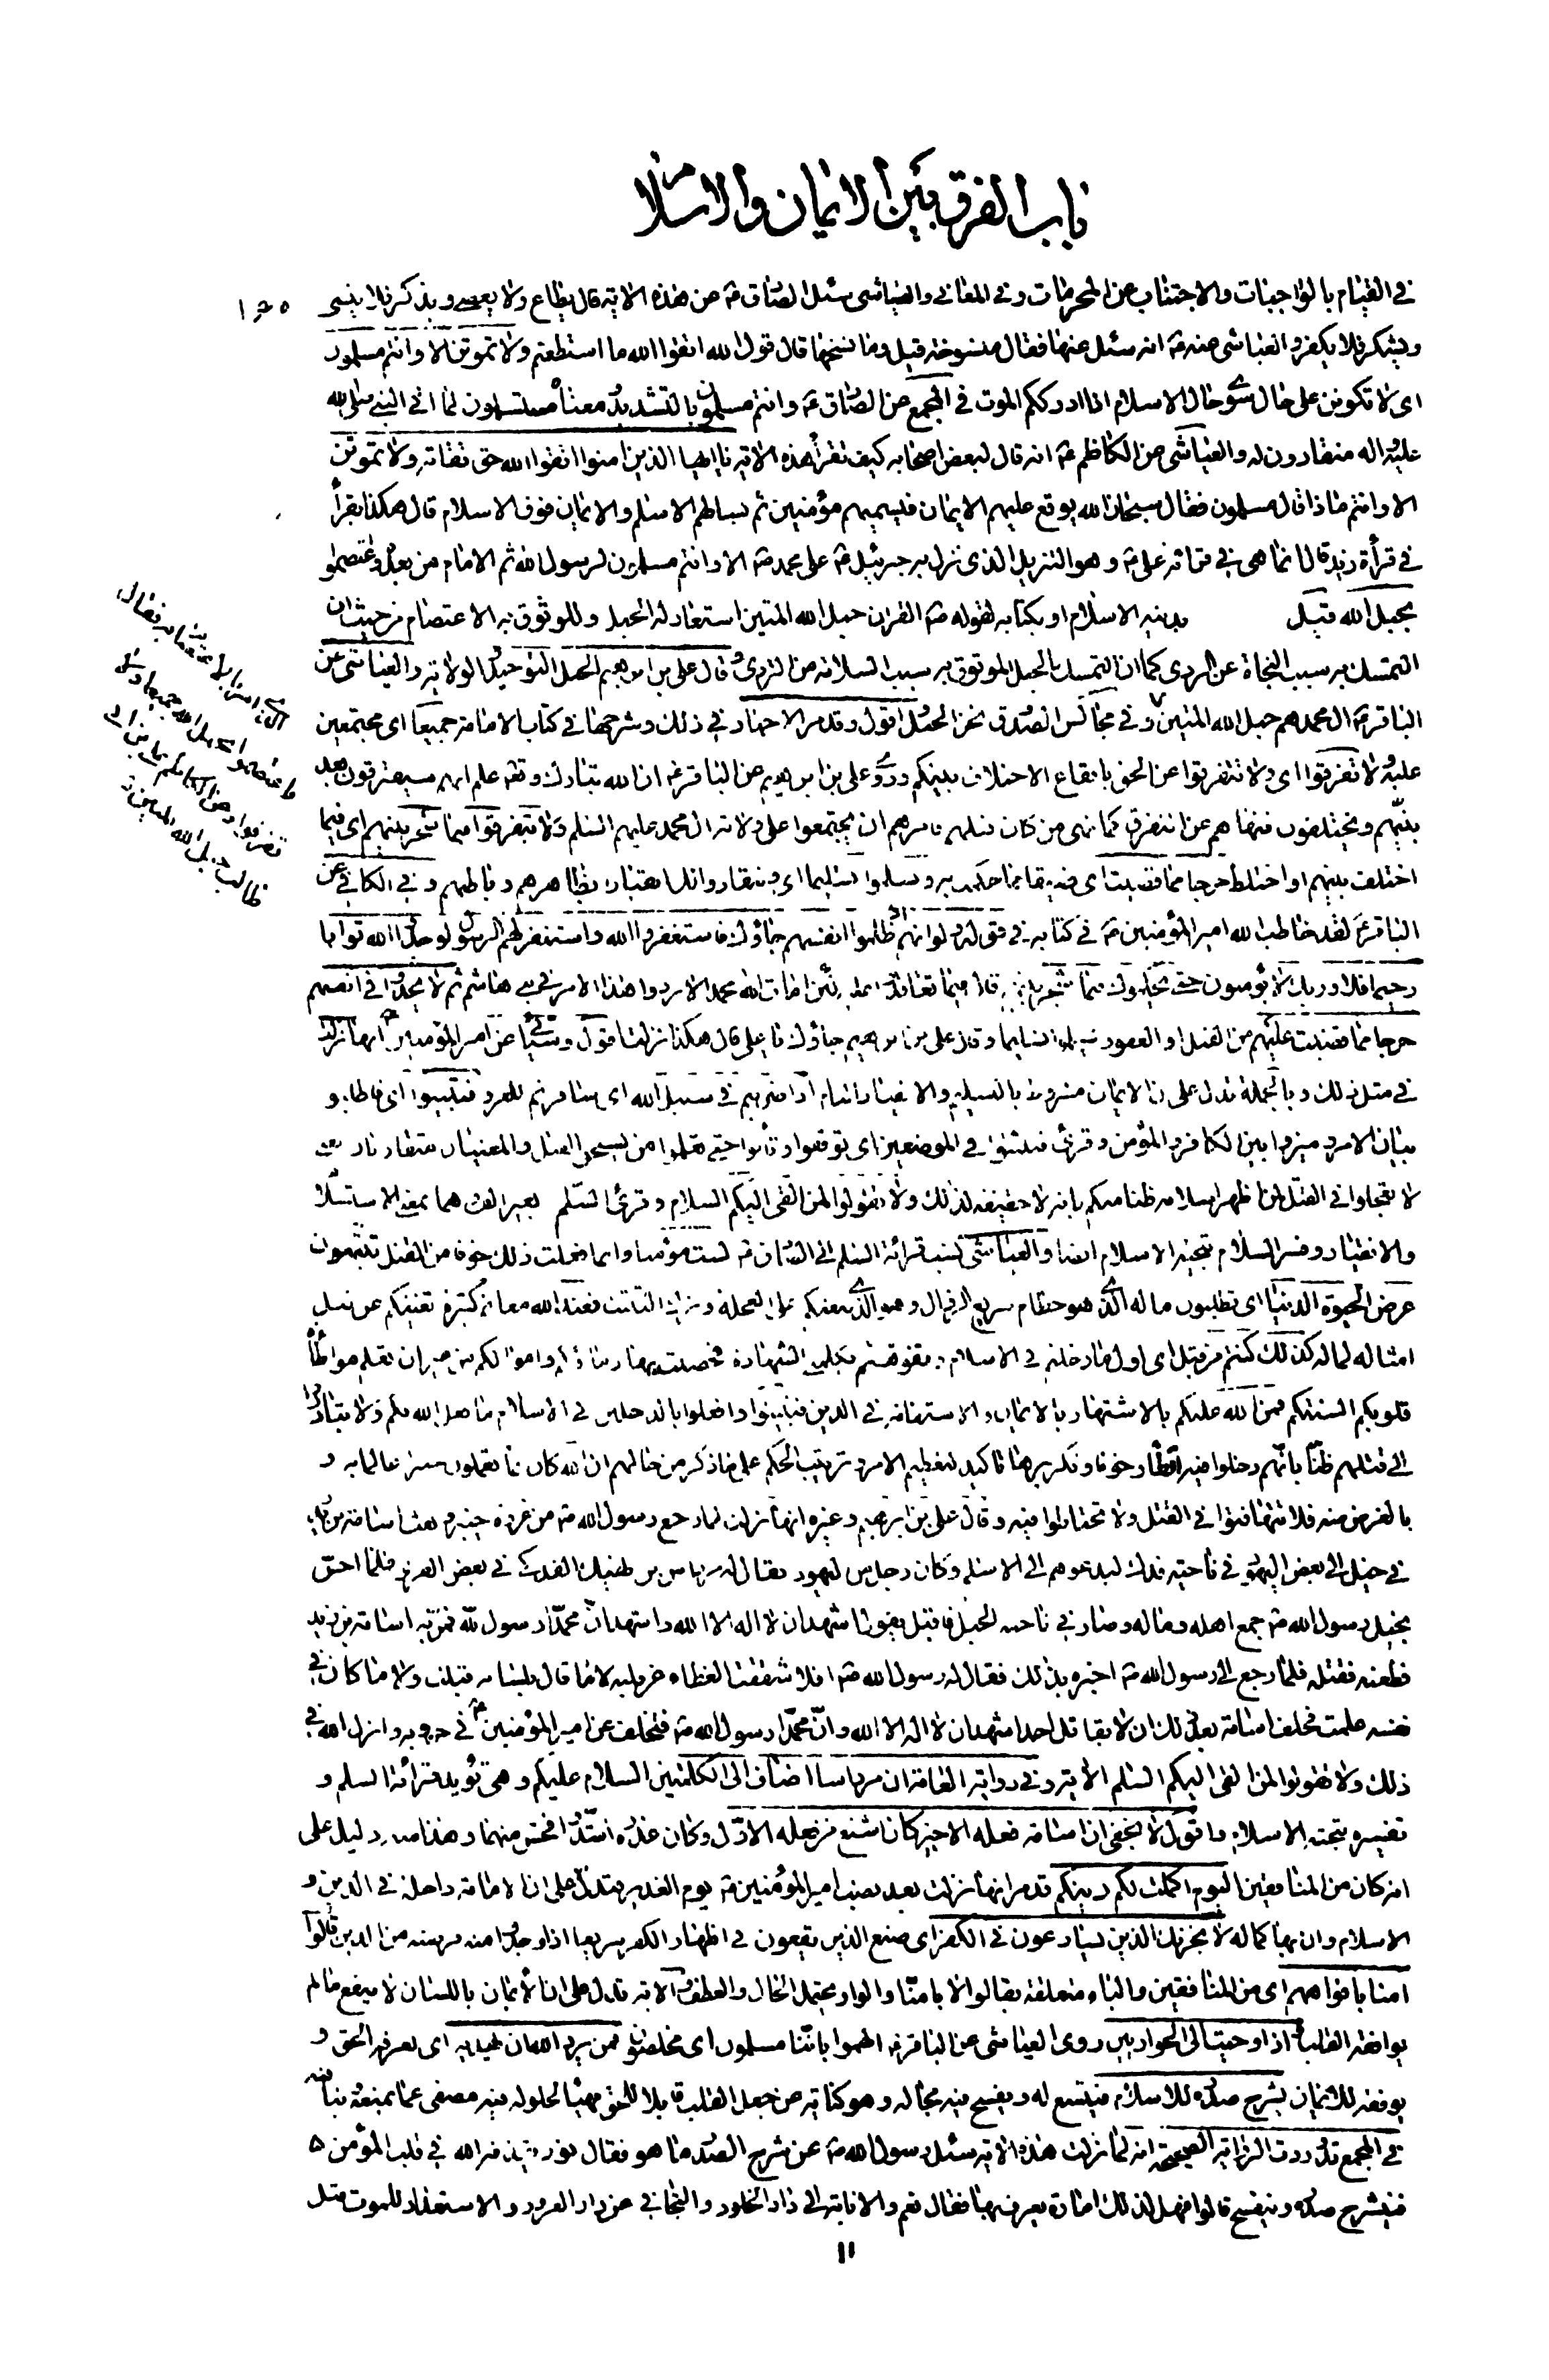 باب الفرق بين الايمان والاسلام
في القيام بالواجبات والاجتناب عن المحرمات وفي المعاني والعياشي سئل الصادق ع عن هذه الاية قال يطاع ولا يعصى ويذكر فلا ينسى
ويشكر فلا يكفر والعياشي عنه ع انه سئل عنها فقال منسوخة قيل وما نسخها قال قول الله اتقوا الله ما استطعتم ولا تموتن الا وانتم مسلمون
اي لا تكونن على حال سوى حال الاسلام اذا ادرككم الموت في المجمع عن الصادق ع وانتم مسلمون بالتشديد ومعناه مستسلمون لما اتى النبي صلى الله
عليه واله منقادون له والعياشي عن الكاظم ع انه قال لبعض اصحابه كيف تقرأ هذه الاية يا ايها الذين امنوا اتقوا الله حق تقاته ولا تموتن
الا وانتم ماذا قال مسلمون فقال سبحان الله يوقع عليهم الايمان فيسميهم مؤمنين ثم يسالهم الاسلم والايمان فوق الاسلام قال هكذا يقرأ
في قرأة زيد قال انما هي في قرائة علي ع وهو التنزيل الذي نزل به جبرئيل ع على محمد ص الا وانتم مسلمون لرسول الله ثم الامام من بعده واعتصموا
بحبل الله قيل بدينه الاسلام او بكتابه لقوله ص القران حبل الله المتين استعار له الحبل وللوثوق به الاعتصام من حيث ان
التمسك به سبب النجاة عن الردى كما ان التمسك بالحبل الموثوق به سبب السلامة من التردي وقال علي بن ابرهيم الحبل التوحيد والولاية والعياشي عن
الباقر ع ال محمد هم حبل الله المتين وفي مجالس الصدوق نحن الحبل اقول وقد مر الاخبار في ذلك وشرحها في كتاب الامامة جميعا اي مجتمعين
عليه ولا تفرقوا اي ولا تتفرقوا عن الحق بايقاع الاختلاف بينكم وروى علي بن ابرهيم عن الباقر ع ان الله تبارك وتعه علم انهم سيفترقون بعد
نبيهم ويختلفون فنهاهم عن التفرق كما نهى من كان قبلهم فامرهم ان يجتمعوا على ولاية ال محمد عليهم السلم ولا يتفرقوا فيما شجر بينهم اي فيما
اختلف بينهم او اختلط حرجا مما قضيت اي ضيقا مما حكمت به ويسلموا تسليما اي وينقادوا لك انقيادا بظاهرهم وباطنهم وفي الكافي عن
الباقر ع لقد خاطب الله امير المؤمنين ع في كتابه في قوله ولو انهم اذ ظلموا انفسهم جاؤك فاستغفروا الله واستغفر لهم الرسول لوجدوا الله توابا
رحيما فلا وربك لا يؤمنون حتى يحكموك فيما شجر بينهم قال فيما تعاقدوا عليه لئن امات الله محمدا لا يردوا هذا الامر في بني هاشم ثم لا يجدوا في انفسهم
حرجا مما قضيت عليهم من القتل او العفو ويسلموا تسليما وقال علي بن ابرهيم جاؤك يا علي قال هكذا نزلت
في مثل ذلك وبالجملة تدل على ان الايمان مشروط بالتسليم والانقياد اذا ضربتم في سبيل الله اي سافرتم للغزو فتبينوا اي فاطلبوا
بيان الامر وميزوا بين الكافر والمؤمن وقرئ فتثبتوا في الموضعين اي توقفوا وتأنوا حتى تعلموا من يستحق القتل والمعنيان متقاربان يعني
لا تعجلوا في القتل لمن اظهر اسلامه ظنا منكم بانه لا حقيقة لذلك ولا تقولوا لمن القى اليكم السلام وقرئ السلم بغير الف هما بمعنى الاستسلام
والانقياد وفسر السلام بتحية الاسلام ايضا والعياشي نسب قرائة السلم الى الصادق ع لست مؤمنا وانما فعلت ذلك خوفا من القتل تبتغون
عرض الحيوة الدنيا اي تطلبون ماله الذي هو حطام سريع الزوال وهو الذي يبعثكم على العجلة وترك التثبت فعند الله مغانم كثيرة تغنيكم عن قتل
امثاله لماله كذلك كنتم من قبل اي اول ما دخلتم في الاسلام وتفوهتم بكلمة الشهادة فحصنت بها دماؤكم واموالكم من غير ان تعلم مواطأة
قلوبكم السنتكم فمن الله عليكم بالاشتهار بالايمان والاستقامة في الدين فتبينوا وافعلوا بالداخلين في الاسلام ما فعل الله بكم ولا تبادروا
الى قتلهم ظنا بانهم دخلوا فيه اتقاء وخوفا وتكريره تاكيد لتعظيم الامر وترتيب الحكم على ما ذكر من حالهم ان الله كان بما تعملون خبيرا عالما به و
بالغرض منه فلا تتهافتوا في القتل ولا تحتاطوا فيه وقال علي بن ابرهيم وغيره انها نزلت لما رجع رسول الله ص من غزوة خيبر وبعث اسامة بن زيد
في خيل الى بعض اليهود في ناحية فدك ليدعوهم الى الاسلم وكان رجل من اليهود يقال له مرداس بن نهيك الفدكي في بعض القرى فلما احس
بخيل رسول الله ص جمع اهله وماله وصار في ناحية الجبل فاقبل يقول اشهد ان لا اله الا الله واشهد ان محمدا رسول الله فمر به اسامة بن زيد
فطعنه فقتله فلما رجع الى رسول الله ص اخبره بذلك فقال له رسول الله ص افلا شققت الغطاء عن قلبه لا ما قال بلسانه قبلت ولا ما كان في
نفسه علمت فحلف اسامة بعد ذلك ان لا يقاتل احدا شهد ان لا اله الا الله وان محمدا رسول الله ص فتخلف عن امير المؤمنين ع في حروبه وانزل الله في
ذلك ولا تقولوا لمن القى اليكم السلم الاية وفي رواية العامة ان مرداسا اضاف الى الكلمتين السلام عليكم وهي تؤيد قرائة السلم و
تفسيره بتحية الاسلام واقول لا يخفى ان اسامة فعله الاخير كان اشنع من فعله الاول وكان عذره اشد وافحش منهما وهذا منه دليل على
انه كان من المنافقين اليوم اكملت لكم دينكم قد مر انها نزلت بعد نصب امير المؤمنين ع يوم الغدير فتدل على ان الامامة داخلة في الدين و
الاسلام وان بها كماله لا يحزنك الذين يسارعون في الكفر اي صنع الذين يقعون في اظهار الكفر سريعا اذا وجدوا منه فرصة من الذين قالوا
امنا بافواههم اي من المنافقين والباء متعلقة بقالوا لا بامنا والواو يحتمل الحال والعطف والاية تدل على ان الايمان باللسان لا ينفع ما لم
يوافقه القلب اذ اوحيت الى الحواريين روى العياشي عن الباقر ع الهموا باننا مسلمون اي مخلصون فمن يرد الله ان يهديه اي يعرفه الحق و
يوفقه للايمان يشرح صدره للاسلام فيتسع له ويفسح فيه مجاله وهو كناية عن جعل القلب قابلا للحق مهيئا لحلوله فيه مصفى عما يمنعه وينافيه
في المجمع قد وردت الرواية الصحيحة انه لما نزلت هذه الاية سئل رسول الله ص عن شرح الصدر ما هو فقال نور يقذفه الله في قلب المؤمن
فينشرح صدره وينفسح قالوا فهل لذلك امارة يعرف بها فقال نعم والانابة الى دار الخلود والتجافي عن دار الغرور والاستعداد للموت قبل
١١